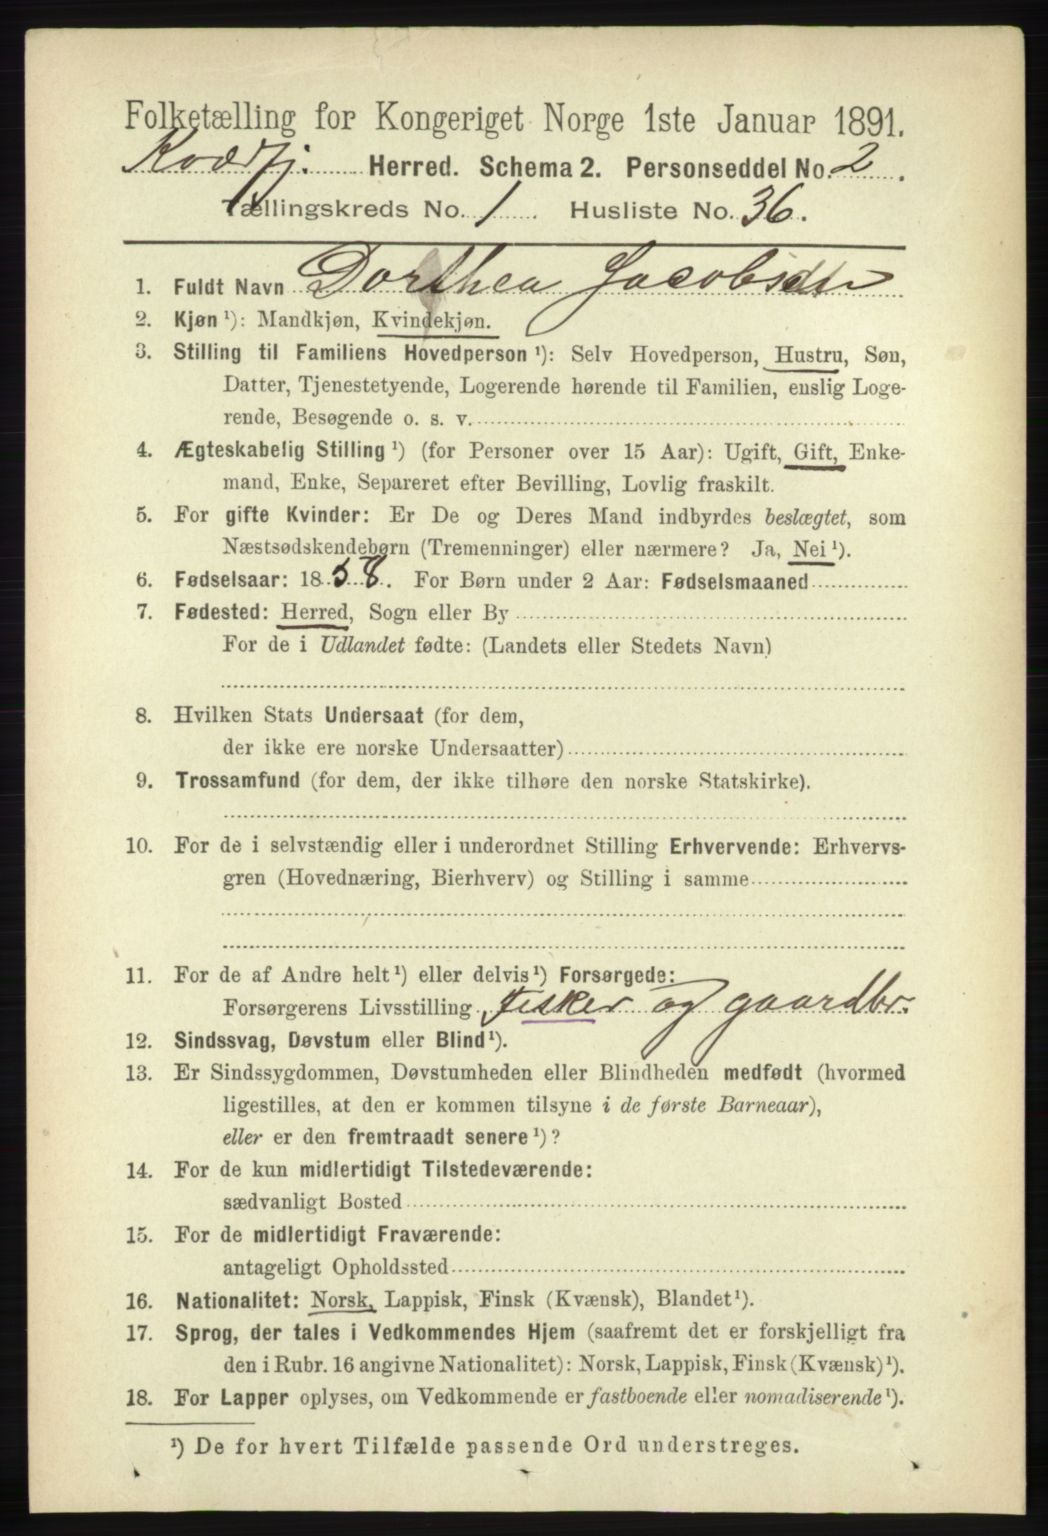 Folketælling for Kongeriget Norge 1ste Januar 1891.
Kvædfj. Herred. Schema 2. Personseddel No. 2.
Tællingskreds No. 1. Husliste No. 36.
1. Fuldt Navn Dorthea Jacobsdtr
2. Kjøn ¹): Mandkjøn, Kvindekjøn.
3. Stilling til Familiens Hovedperson ¹): Selv Hovedperson, Hustru, Søn,
Datter, Tjenestetyende, Logerende hørende til Familien, enslig Loge-
rende, Besøgende o. s. v.
4. Ægteskabelig Stilling ¹) (for Personer over 15 Aar): Ugift, Gift, Enke-
mand, Enke, Separeret efter Bevilling, Lovlig fraskilt.
5. For gifte Kvinder: Er De og Deres Mand indbyrdes beslægtet, som
Næstsødskendebørn (Tremenninger) eller nærmere? Ja, Nei ¹).
6. Fødselsaar: 1858. For Børn under 2 Aar: Fødselsmaaned
7. Fødested: Herred, Sogn eller By
For de i Udlandet fødte: (Landets eller Stedets Navn)
8. Hvilken Stats Undersaat (for dem,
der ikke ere norske Undersaatter)
9. Trossamfund (for dem, der ikke tilhøre den norske Statskirke).
10. For de i selvstændig eller i underordnet Stilling Erhvervende: Erhvervs-
gren (Hovednæring, Bierhverv) og Stilling i samme
11. For de af Andre helt ¹) eller delvis ¹) Forsørgede:
Forsørgerens Livsstilling Fisker og gaardbr.
12. Sindssvag, Døvstum eller Blind ¹).
13. Er Sindssygdommen, Døvstumheden eller Blindheden medfødt (hvormed
ligestilles, at den er kommen tilsyne i de første Barneaar),
eller er den fremtraadt senere ¹)?
14. For de kun midlertidigt Tilstedeværende:
sædvanligt Bosted
15. For de midlertidigt Fraværende:
antageligt Opholdssted
16. Nationalitet: Norsk, Lappisk, Finsk (Kvænsk), Blandet ¹).
17. Sprog, der tales i Vedkommendes Hjem (saafremt det er forskjelligt fra
den i Rubr. 16 angivne Nationalitet): Norsk, Lappisk, Finsk (Kvænsk) ¹).
18. For Lapper oplyses, om Vedkommende er fastboende eller nomadiserende ¹).
¹) De for hvert Tilfælde passende Ord understreges.